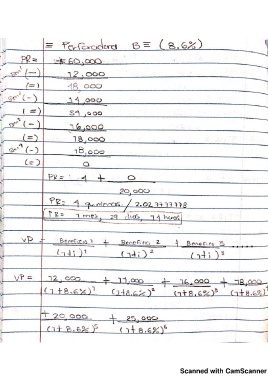 ≡ Perforadora B ≡ (8.6%)
PR= -60,000
(-) 12,000
(=) 48,000
(-) 14,000
(=) 34,000
(-) 16,000
(=) 18,000
(-) 18,000
(=) 0
PR= 4 + 0
20,000
PR: 4
PR= 1 mes, 29 días, 14 horas
VP = Beneficio 1 + Beneficio 2 + Beneficio 3 .....
(1+i)¹ (1+i)² (1+i)³
VP = 12,000 + 14,000 + 16,000 + 18,000
(1+8.6%)¹ (1+8.6%)² (1+8.6%)³ (1+8.6%)
+ 20,000 + 25,000
(1+8.6%)⁵ (1+8.6%)⁶
Scanned with CamScanner